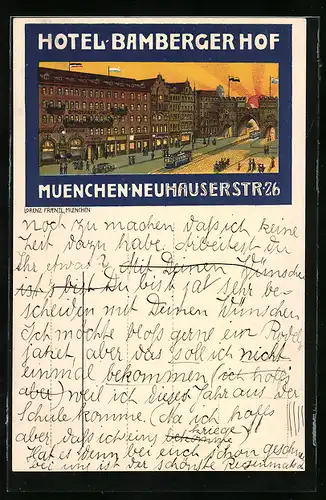 HOTEL·BAMBERGER HOF
MUENCHEN·NEUHAUSERSTR·26
LORENZ FRAENZL, MUENCHEN
noch zu machen daß ich keine
Zeit dazu habe. Arbeitest du
Ihr etwas? Mit Deinen Wünsche
Du bist ja sehr be-
scheiden mit Deinen Wünschen
Ich möchte bloß gerne ein Rodel
jaket, aber das soll ich nicht
einmal bekommen (ich hoffs
aber) weil ich dieses Jahr aus der
Schule komme. (Na ich hoffs
aber, daß ich eins kriege)
Hat es denn bei euch schon geschneit
bei uns ist der schönste Regenmatsch